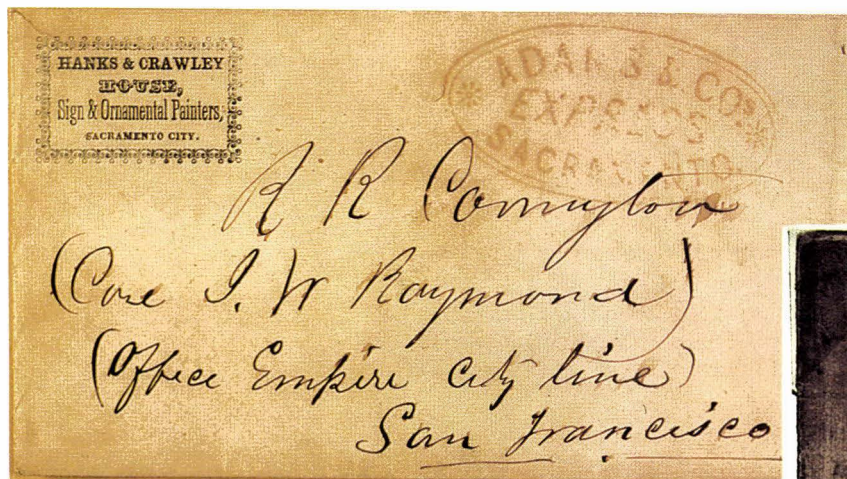 HANKS & CRAWLEY
HOUSE,
Sign & Ornamental Painters,
SACRAMENTO CITY.
ADAMS & CO'S
EXPRESS
SACRAMENTO
R R Comyton
(Care I. W Raymond)
(Office Empire City line)
San Francisco